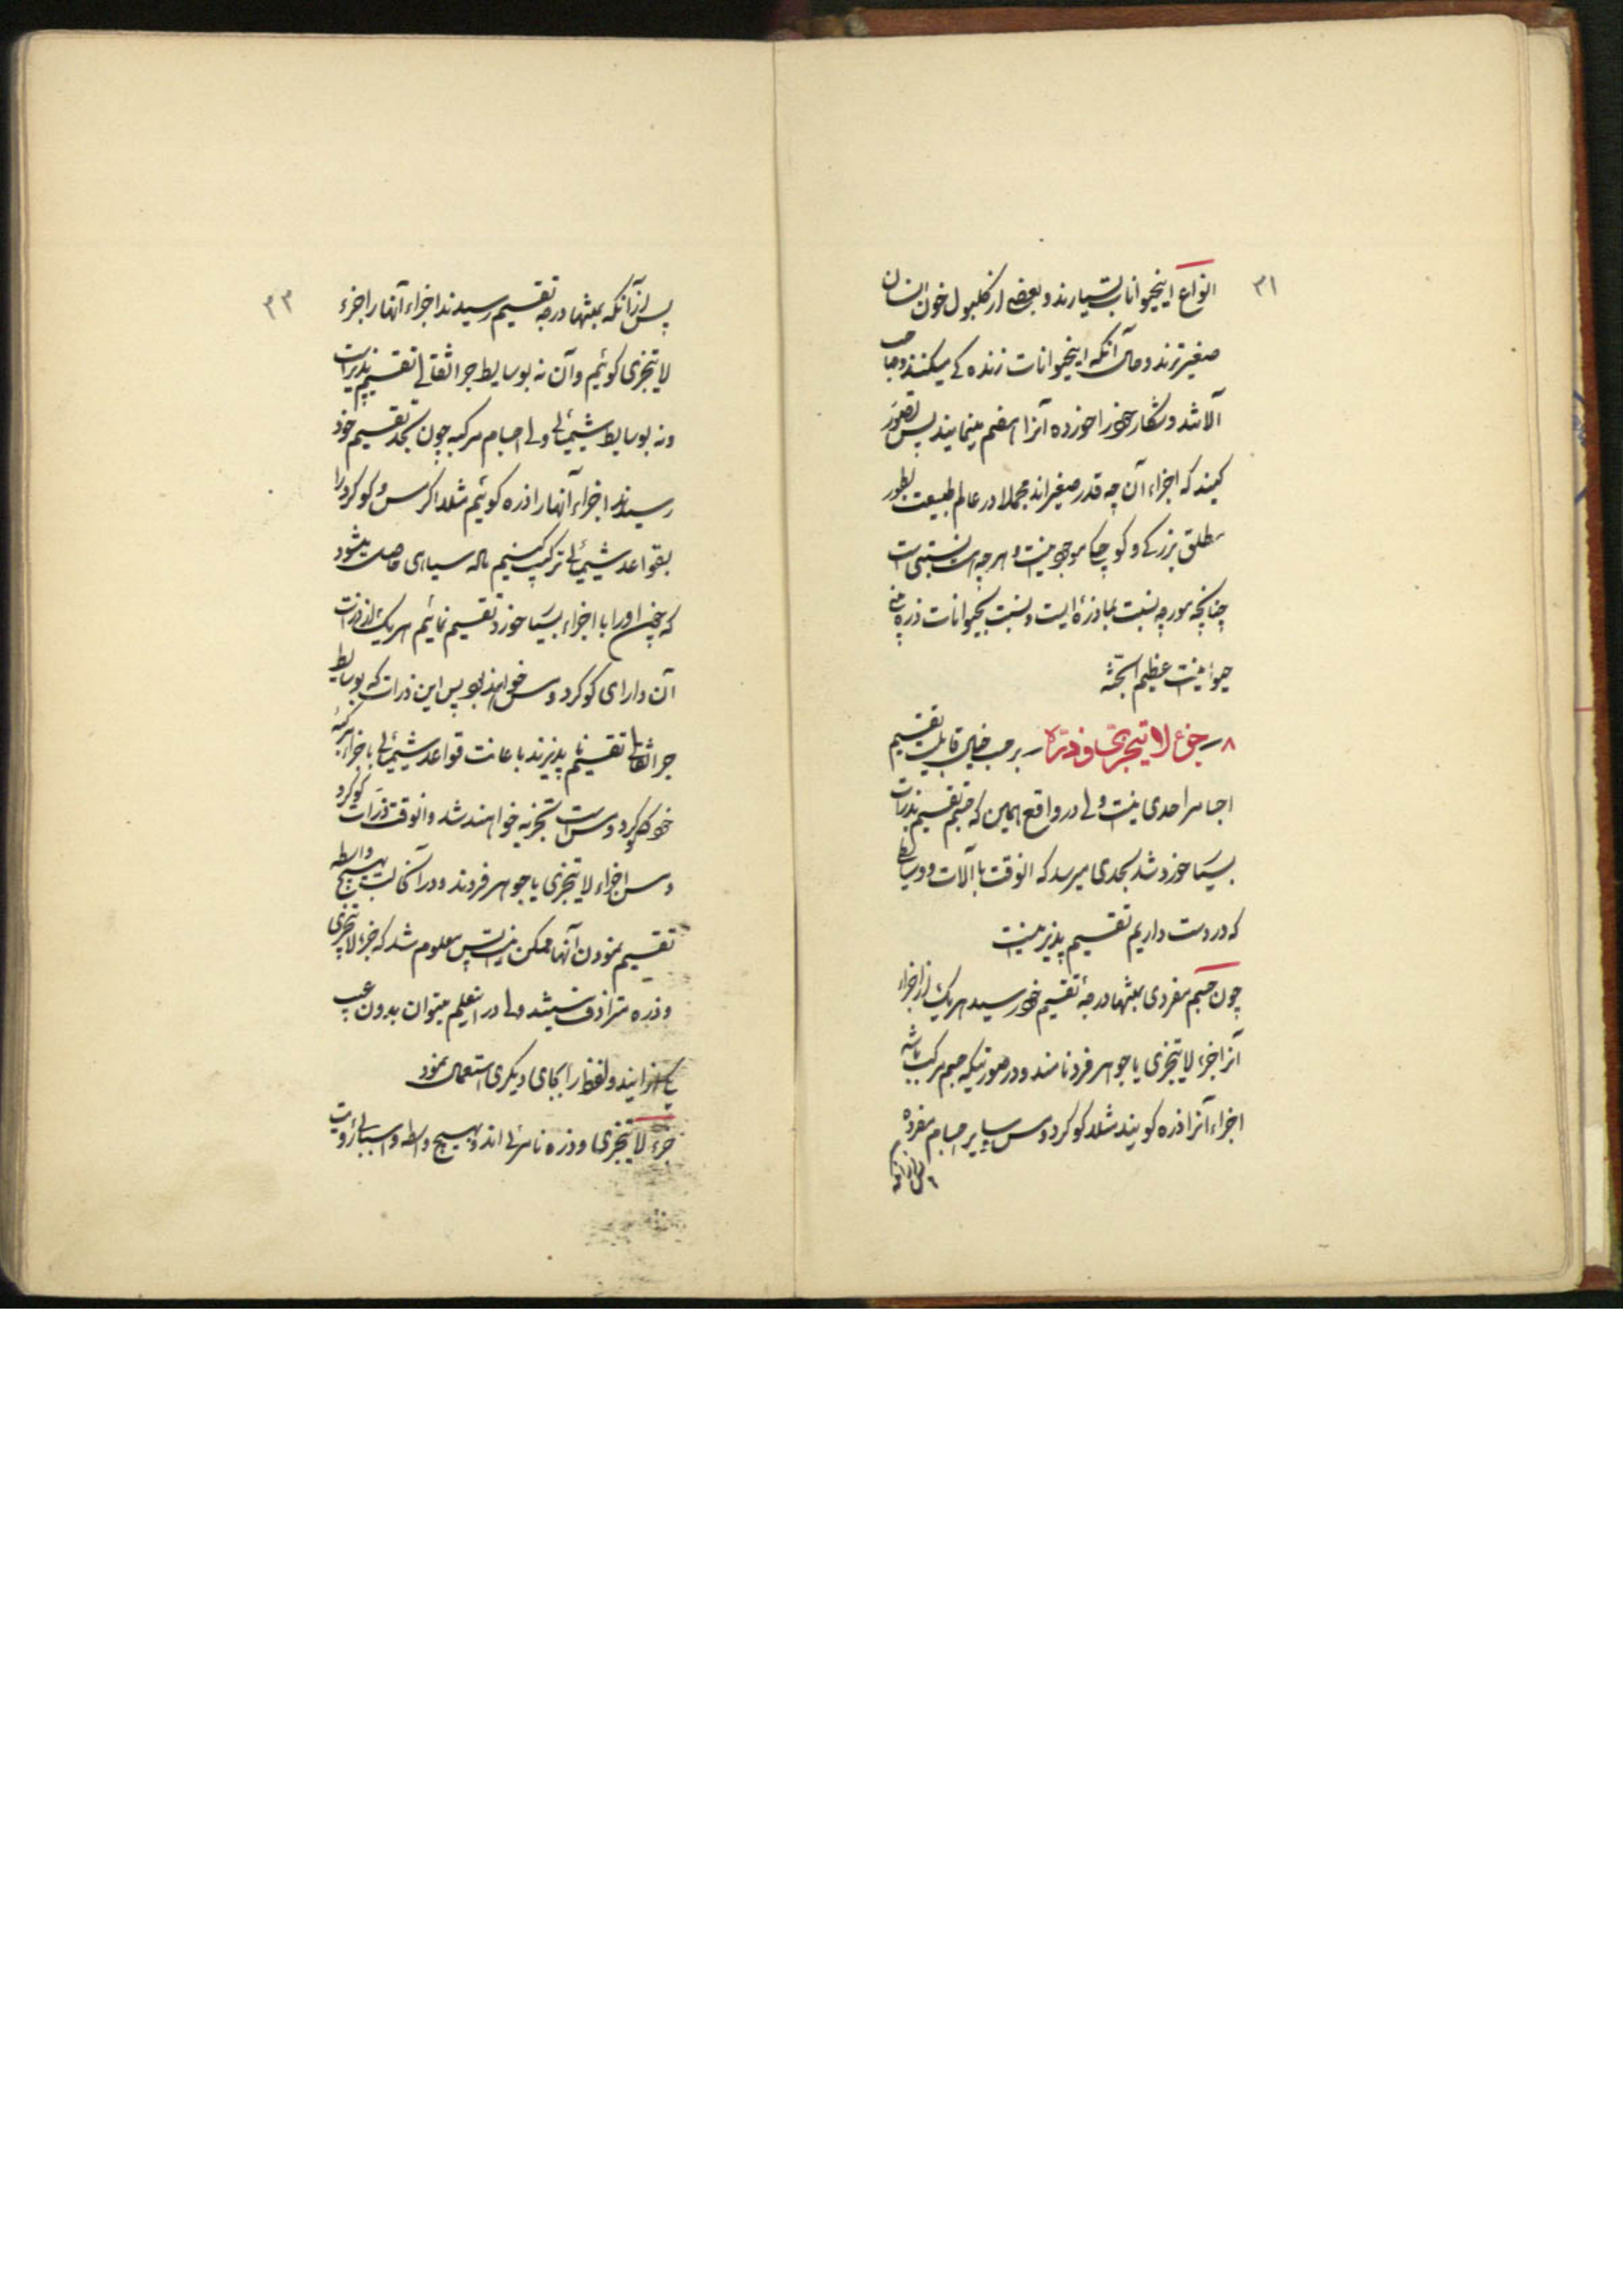 ۳۱
انواع اینحیوانات بسیارند و بعضی از کلبول خون انسان
صغیرترند و حال آنکه اینحیوانات زنده‌گی میکنند و صاحب
آلاتند و شکار خود را خورده آنرا هضم مینمایند پس تصور
کنید که اجزاء آن چه قدر صغیراند مجملا در عالم طبیعت بطور
مطلق بزرگی و کوچکی موجود نیست و هر چه هست نسبتی است
چنانچه مورچه نسبت بما ذرۀ ایست و نسبت بحیوانات ذره بینی
حیوانیست عظیم الجثه
۸ ـ جزء لایتجزی و ذره ـ بر حسب خیال قابلیت تقسیم
اجسام را حدی نیست ولی در واقع همین که جسم تقسیم بذرات
بسیار خورد شد بحدی میرسد که انوقت با آلات و وسایط
که در دست داریم تقسیم پذیر نیست
چون جسم مفردی بمنتها درجۀ تقسیم خود رسید هر یک از اجزاء
آنرا جزء لایتجزی یا جوهر فرد نامند و در صورتیکه جسم مرکب باشد
اجزاء آنرا ذره کویند مثلا کوکرد و مس و سایر اجسام مفرده
پس از آنکه
۳۳
پس از آنکه بمنتها درجه تقسیم رسیدند اجزاء آنها را جزء
لایتجزی کوئیم و آن نه بوسایط جر اثقالی تقسیم پذیر است
و نه بوسایط شیمیائی ولی اجسام مرکبه چون بحد تقسیم خود
رسیدند اجزاء آنها را ذره کوئیم مثلا اکر مس و کوکرد را
بقواعد شیمیائی ترکیب کنیم ماده سیاهی حاصل میشود
که چون او را با اجزاء بسیار خورد تقسیم نمائیم هر یک از ذرات
آن دارای کوکرد و مس خواهند بود پس این ذرات که بوسایط
جر اثقالی تقسیم نا پذیرند باعانت قواعد شیمیائی باجزاء مرکبۀ
خود که کوکرد و مس است تجزیه خواهند شد و انوقت ذرات کوکرد
و مس اجزاء لایتجزی یا جوهر فردند و در آنحالت بهیچ واسطه
تقسیم نمودن آنها ممکن نیست پس معلوم شد که جزء لایتجزی
و ذره مترادف نیستند ولی در تعلیم میتوان بدون عیب
یکی از ایندو لفظ را بجای دیکری استعمال نمود
جزء لایتجزی و ذره نامرئی اند و بهیچ واسطه و اسبابی رؤیت